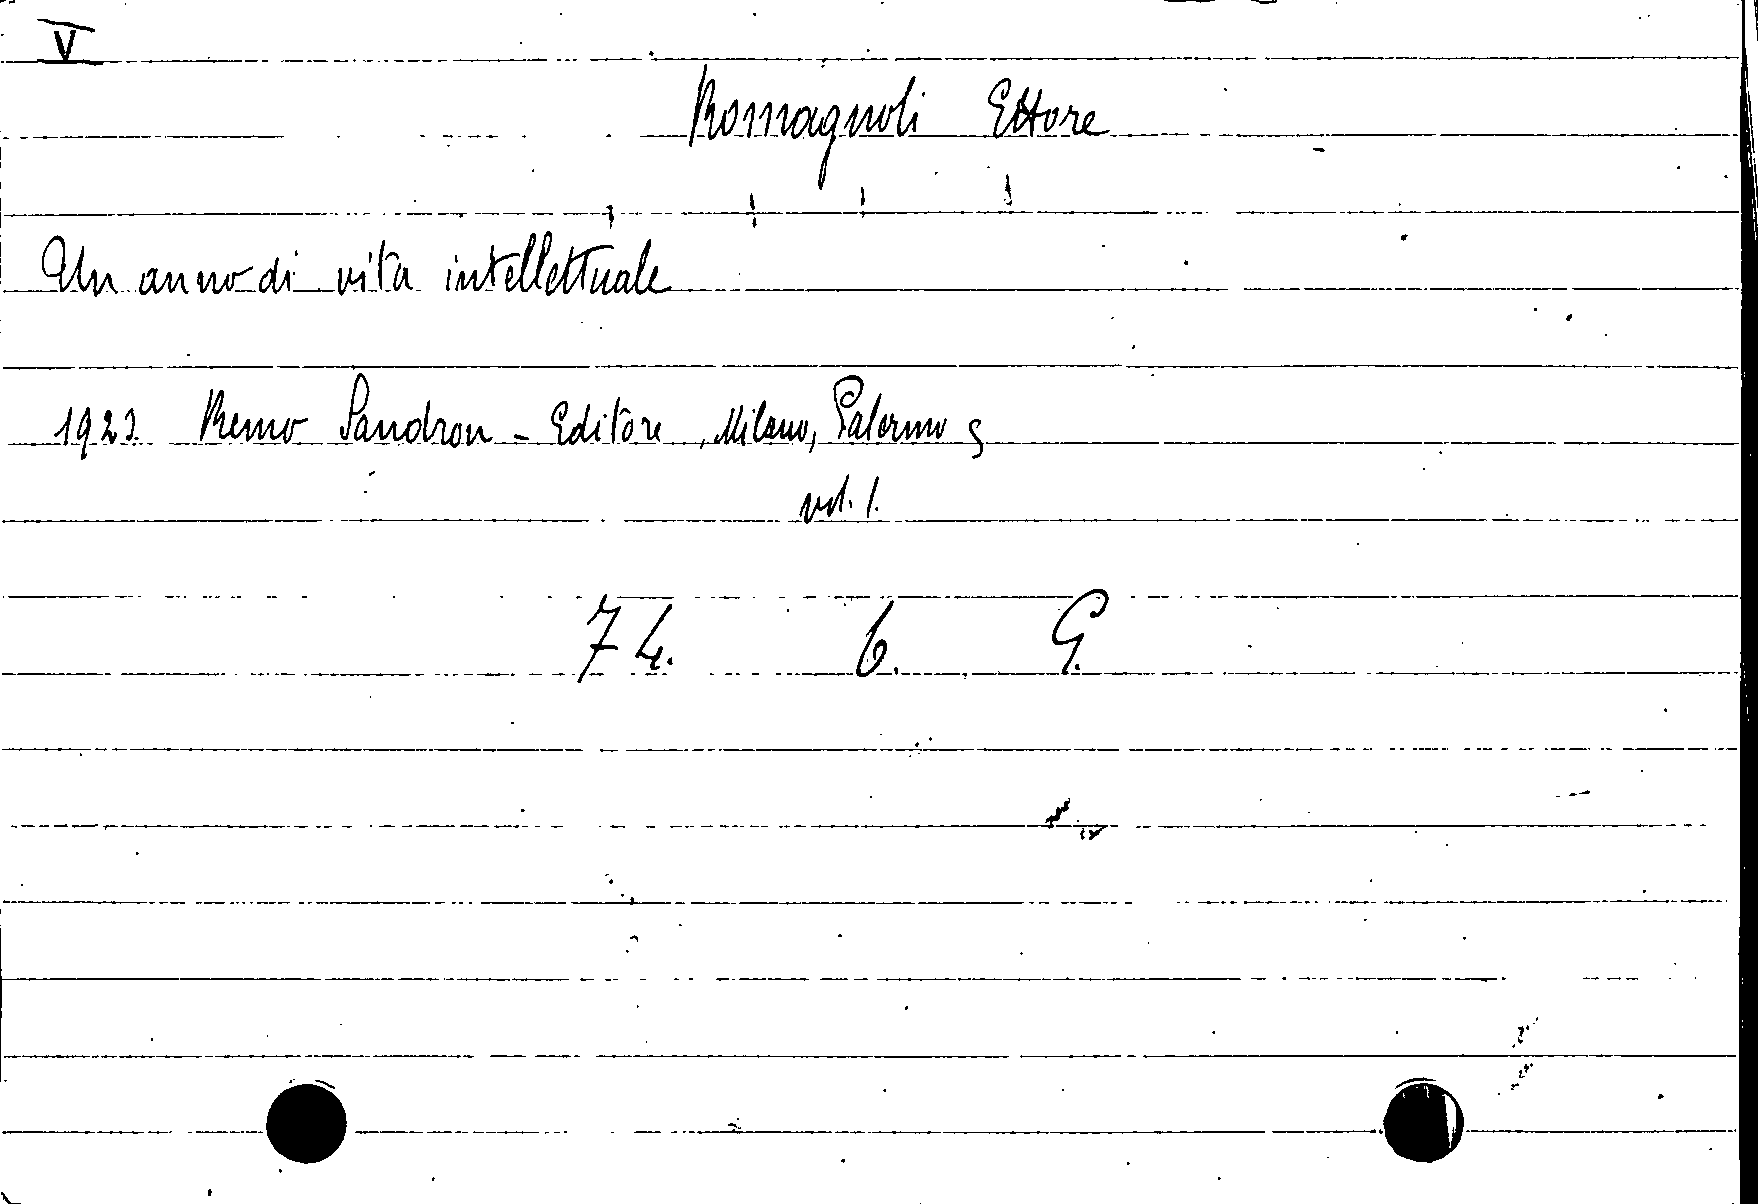 V
Romagnoli Ettore
Un anno di vita intellettuale
1923. Remo Sandron - Editore, Milano, Palermo
vol. 1.
74. 6. G.